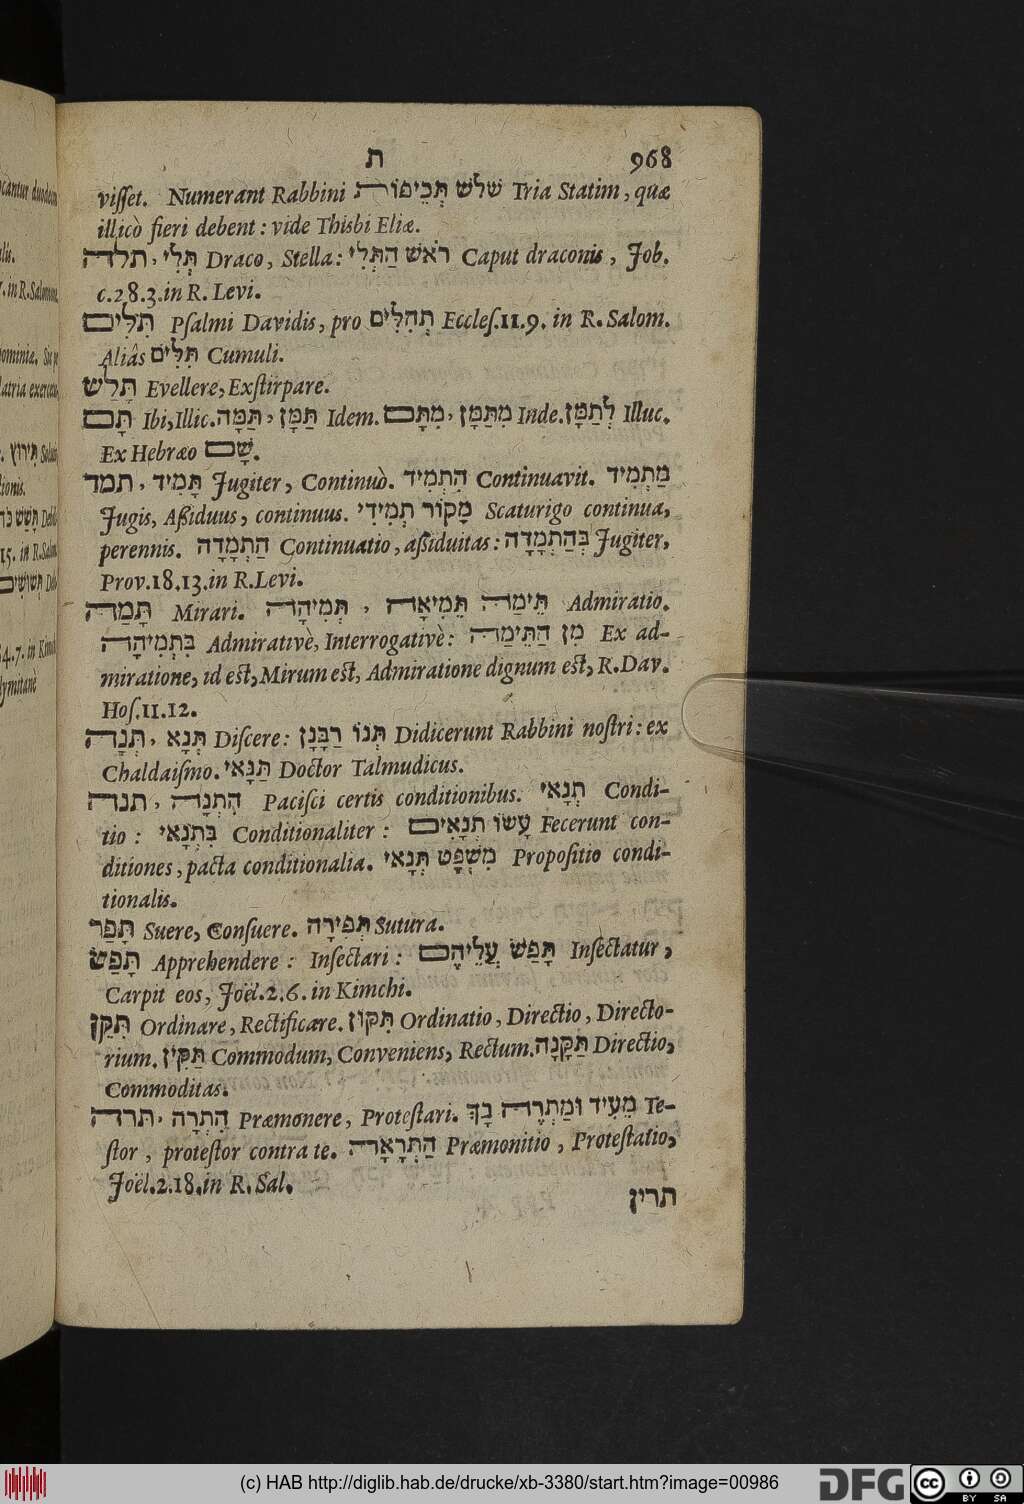 ת 968
viſſet. Numerant Rabbini שלש תְּכֵיפוֹת Tria Statim, quæ
illicò fieri debent: vide Thisbi Eliæ.
תלה, תְּלִי Draco, Stella: רֹאשׁ הַתְּלִי Caput draconis, Job.
c.28.3.in R. Levi.
תִלִּים Pſalmi Davidis, pro תְהִלִּים Eccleſ.11.9. in R. Salom.
Aliâs תִּלִּים Cumuli.
תָּלַשׁ Evellere, Exſtirpare.
תָּם Ibi, Illic. תַּמָּה, תַּמָּן Idem. מִתָּם, מִתַּמָּן Inde. לְתַמָּן Illuc.
Ex Hebræo שָׁם.
תמד, תָּמִיד Jugiter, Continuò. הִתְמִיד Continuavit. מַתְמִיד
Jugis, Aſsiduus, continuus. מָקוֹר תְמִידִי Scaturigo continua,
perennis. הַתְמָדָה Continuatio, aſsiduitas: בְּהַתְמָדָה Jugiter,
Prov.18.13.in R.Levi.
תָּמַהּ Mirari. תְּמִיהָה, תֵּימַהּ תְּמִיאָה Admiratio.
בִּתְמִיהָה Admirativè, Interrogativè: מִן הַתֵּימַהּ Ex ad-
miratione, id eſt, Mirum eſt, Admiratione dignum eſt, R.Dav.
Hoſ.11.12.
תְּנָה, תְּנָא Diſcere: תְּנוֹ רַבָּנָן Didicerunt Rabbini noſtri: ex
Chaldaiſmo. תַּנָּאי Doctor Talmudicus.
תנה, הִתְנָה Paciſci certis conditionibus. תְנָאי Condi-
tio: בִּתְנָאי Conditionaliter: עָשׂוּ תְנָאִים Fecerunt con-
ditiones, pacta conditionalia. מִשְׁפָּט תְּנָאי Propoſitio condi-
tionalis.
תָּפַר Suere, Conſuere. תְּפִירָה Sutura.
תָּפַשׂ Apprehendere: Inſectari: תָּפַשׂ עֲלֵיהֶם Inſectatur,
Carpit eos, Joël.2.6. in Kimchi.
תִּקֵּן Ordinare, Rectificare. תִּקּוּן Ordinatio, Directio, Directo-
rium. תַּקִּין Commodum, Conveniens, Rectum. תַּקָּנָה Directio,
Commoditas.
תרה, הִתְרָה Præmonere, Proteſtari. מֵעִיד וּמַתְרֶה בָּךְ Te-
ſtor, proteſtor contra te. הַתְרָאָה Præmonitio, Proteſtatio,
Joël.2.18.in R. Sal.
תרין
(c) HAB http://diglib.hab.de/drucke/xb-3380/start.htm?image=00986 DFG cc BY SA